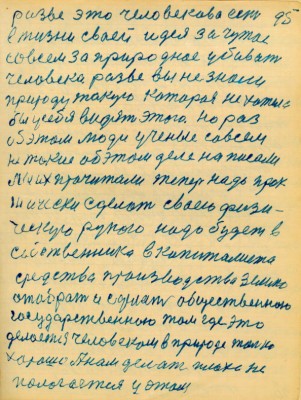 разве это человекова есть 95
в жизни своей идея за чужое
совсем за природное убиват
человека разве вы не знали
природу такую которая не хотел
бы у себя видят этого. но раз
об этом люди ученые совсем
не такие об этом деле написали
Мы их прочитали теперь надо прак
тически сделат свою физи-
ческую рукою надо будет в
собственника в капиталиста
средства производства Землю
отобрат и сделат обществиною
государственною там где это
делается человеком в природе только
хорошо А нам делат плохо не
пологается у этом